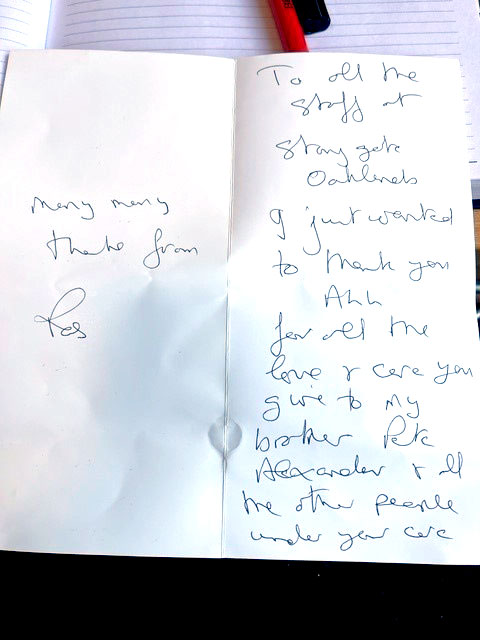 many many
thanks from
Ros
To all the
staff at
Stoneygate
Oaklands
I just wanted
to thank you
Ahh
for all the
love & care you
give to my
brother Pete
Alexander & all
the other people
under your care